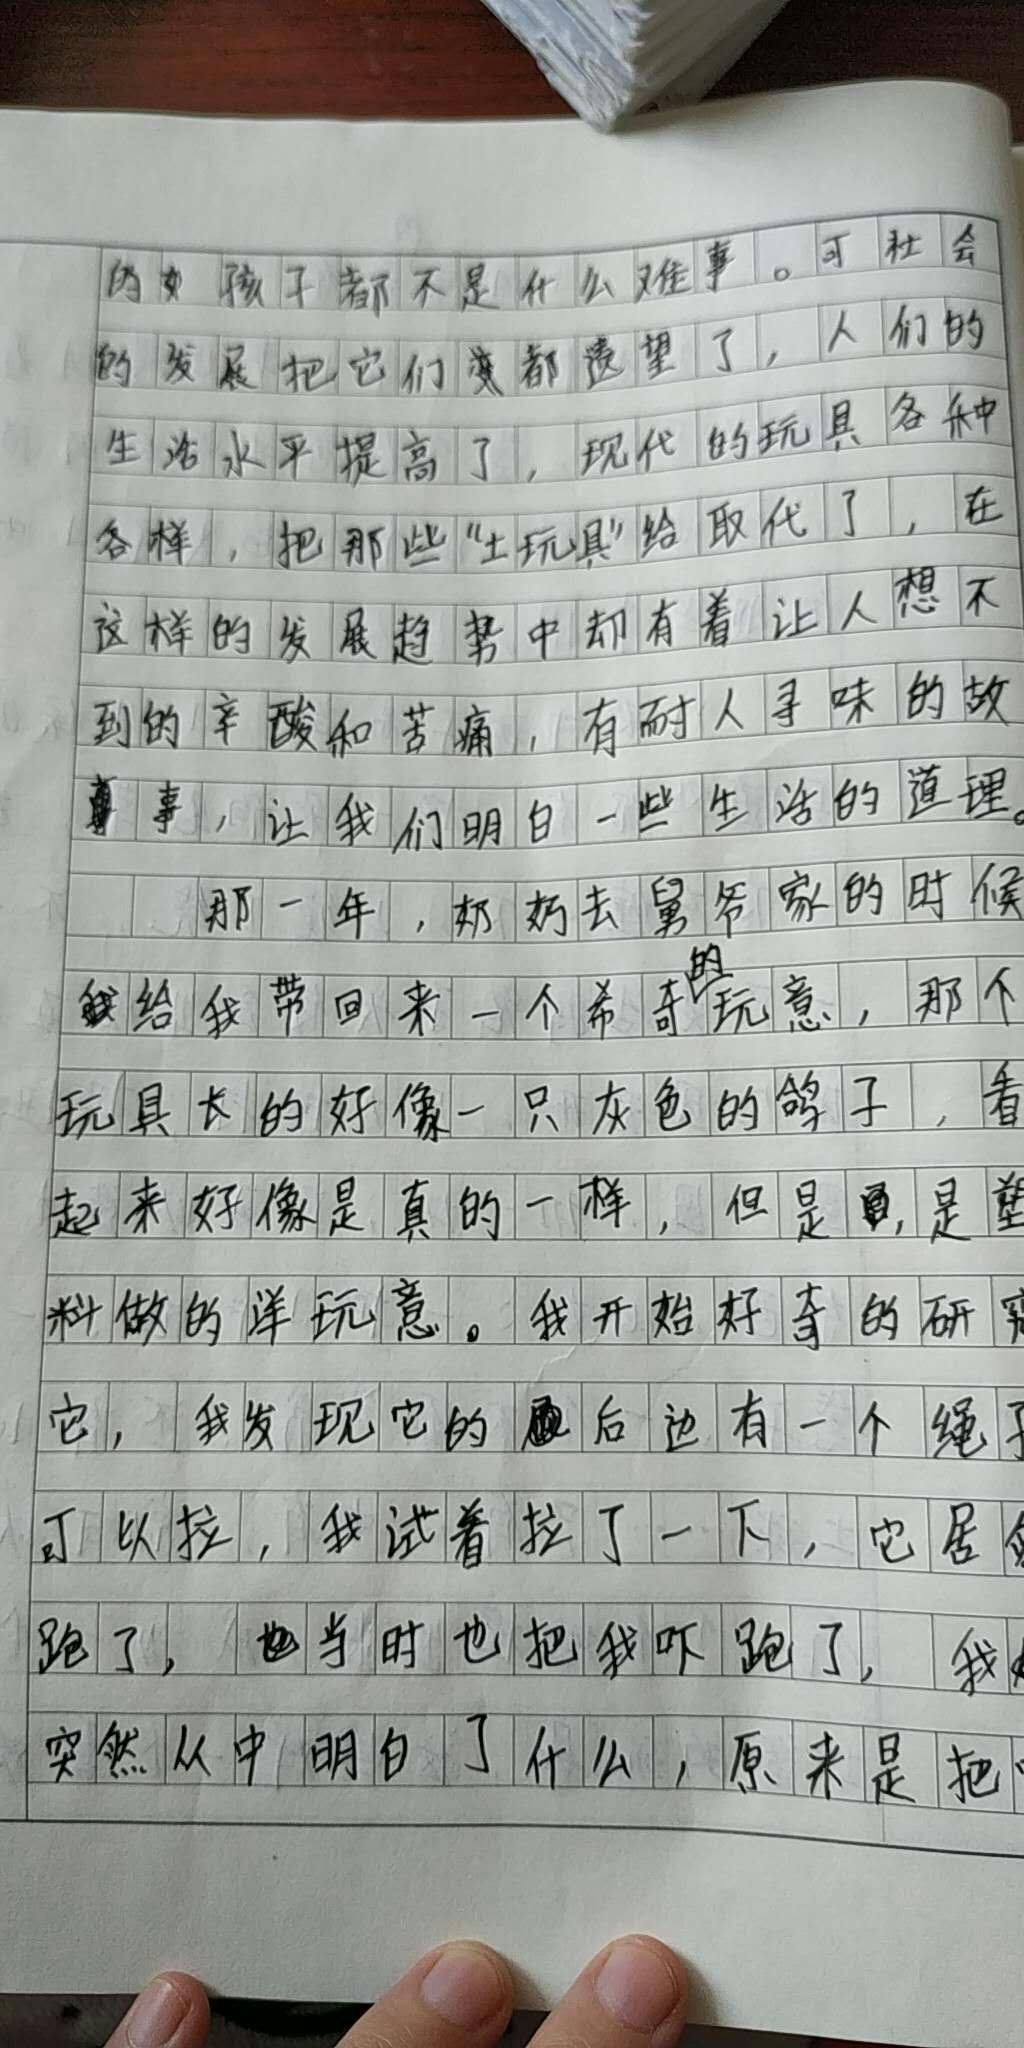 的女孩子都不是什么难事。可社会
的发展把它们变都遗望了，人们的
生活水平提高了，现代的玩具各种
各样，把那些“土玩具”给取代了，在
这样的发展趋势中却有着让人想不
到的辛酸和苦痛，有耐人寻味的故
事，让我们明白一些生活的道理。
那一年，奶奶去舅爷家的时候
给我带回来一个希奇的玩意，那个
玩具长的好像一只灰色的鸽子，看
起来好像是真的一样，但是，是塑
料做的洋玩意。我开始好奇的研究
它，我发现它的后边有一个绳子
可以拉，我试着拉了一下，它居然
跑了，当时也把我吓跑了，我
突然从中明白了什么，原来是把